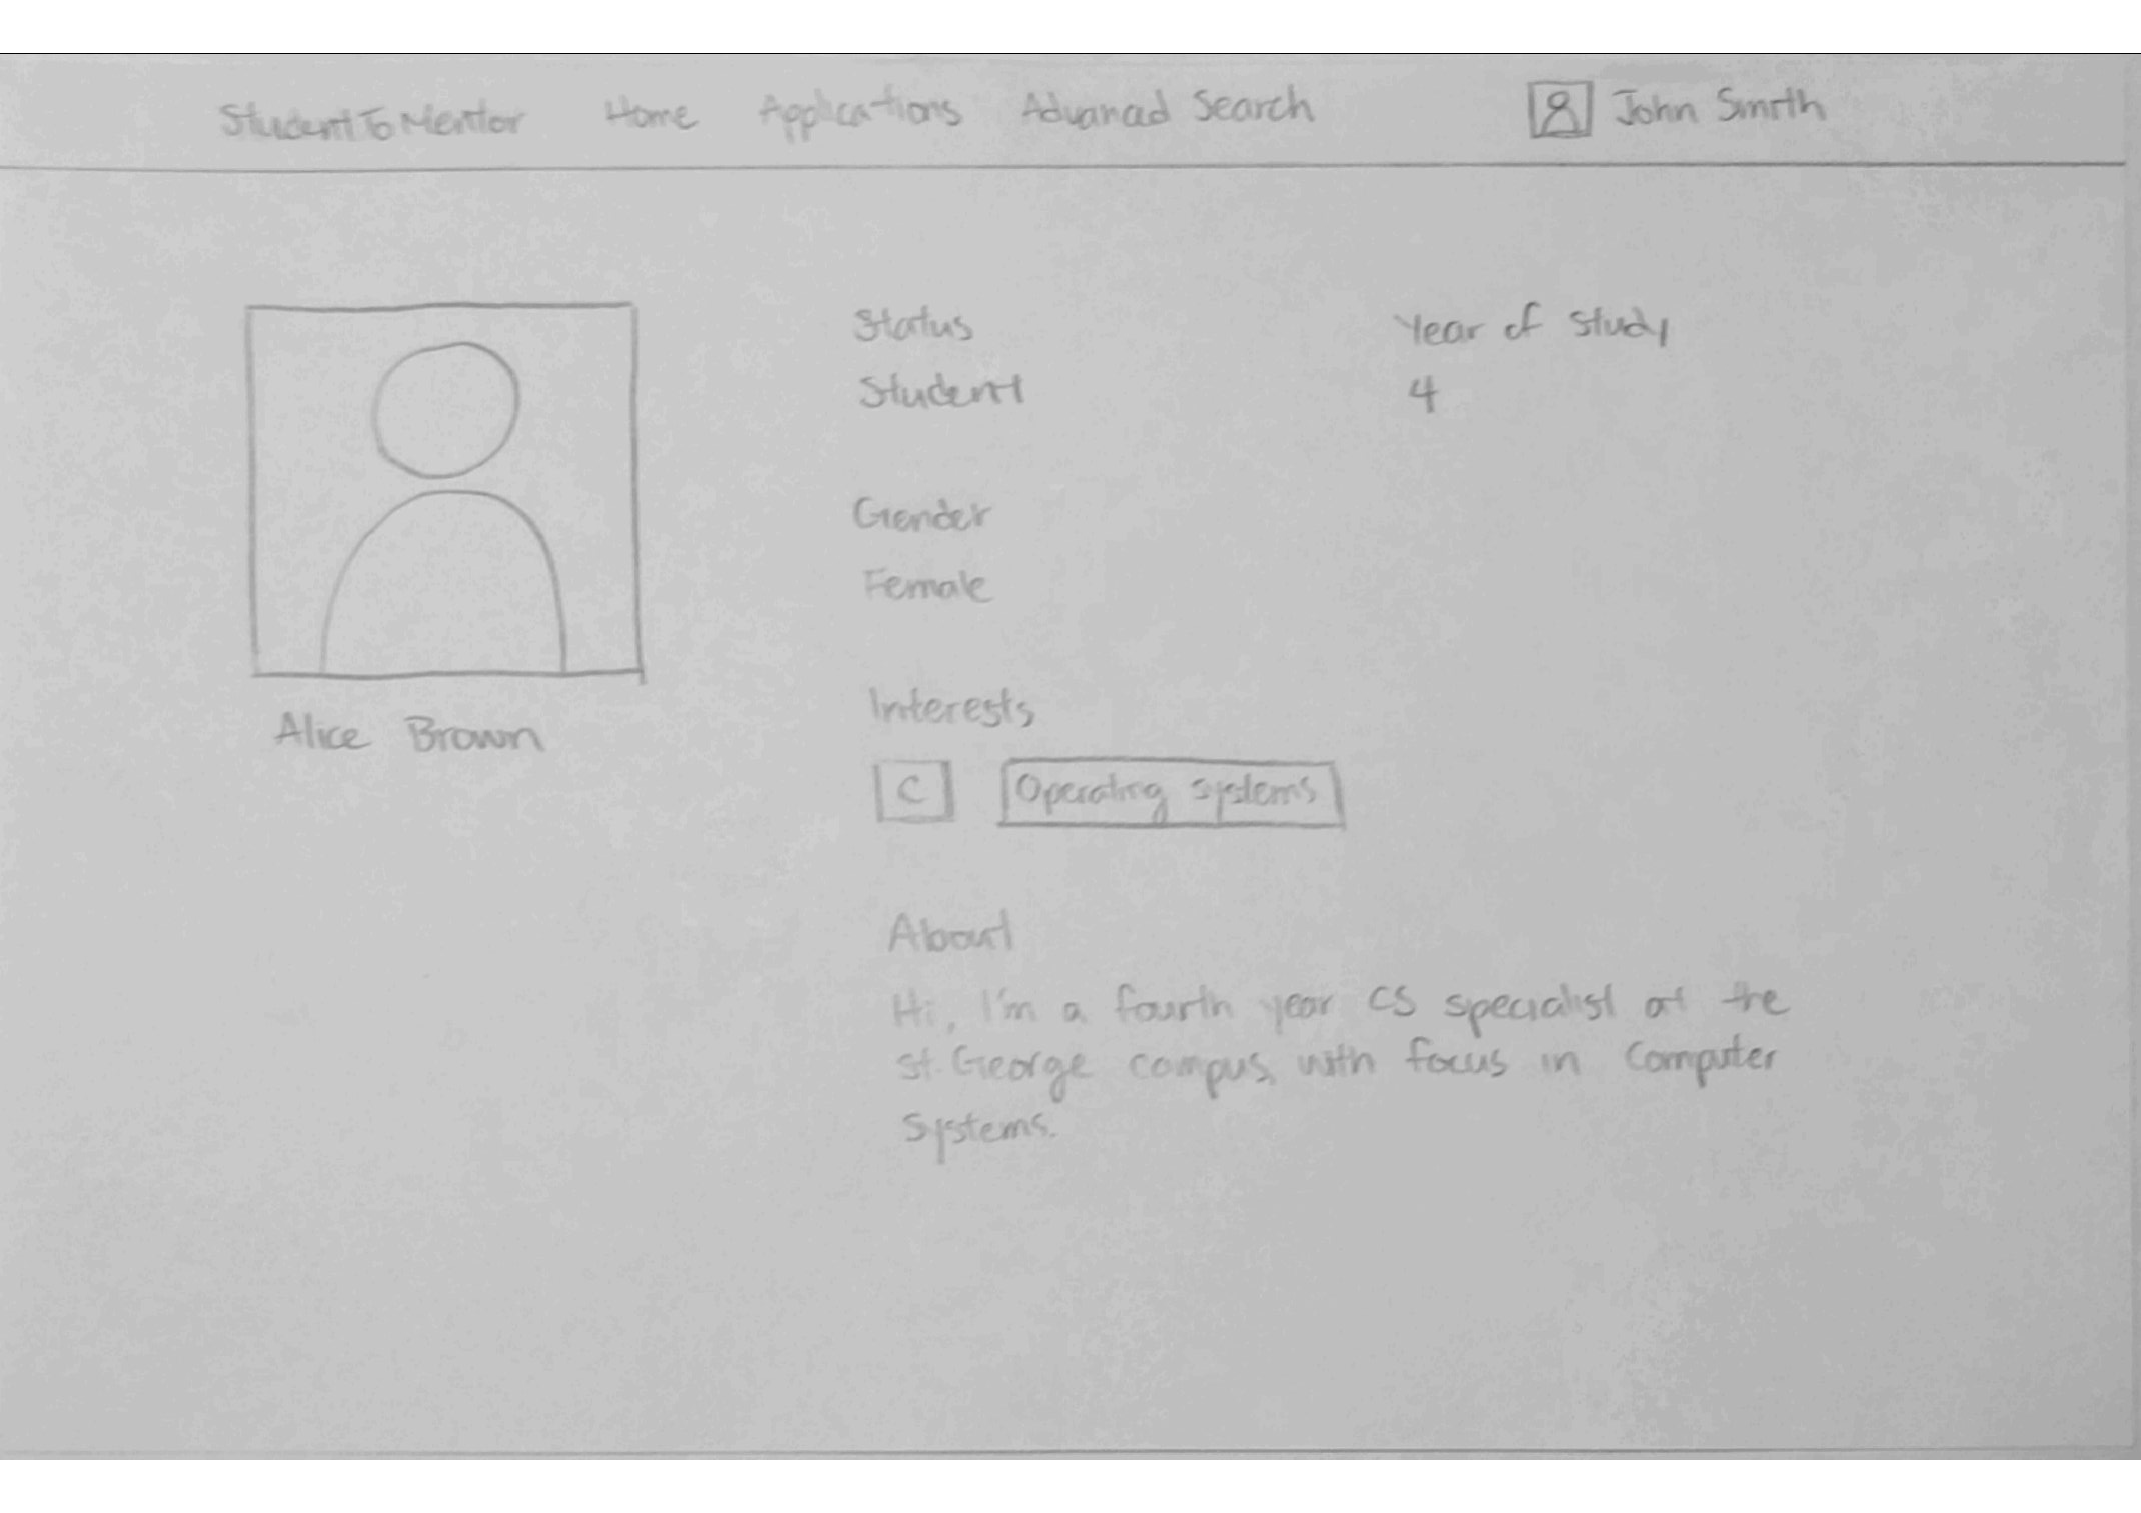 StudentToMentor Home Applications Advanced Search John Smith
Status Year of Study
Student 4
Gender
Female
Interests
Alice Brown
C Operating systems
About
Hi, I'm a fourth year CS specialist at the
St. George campus, with focus in Computer
Systems.